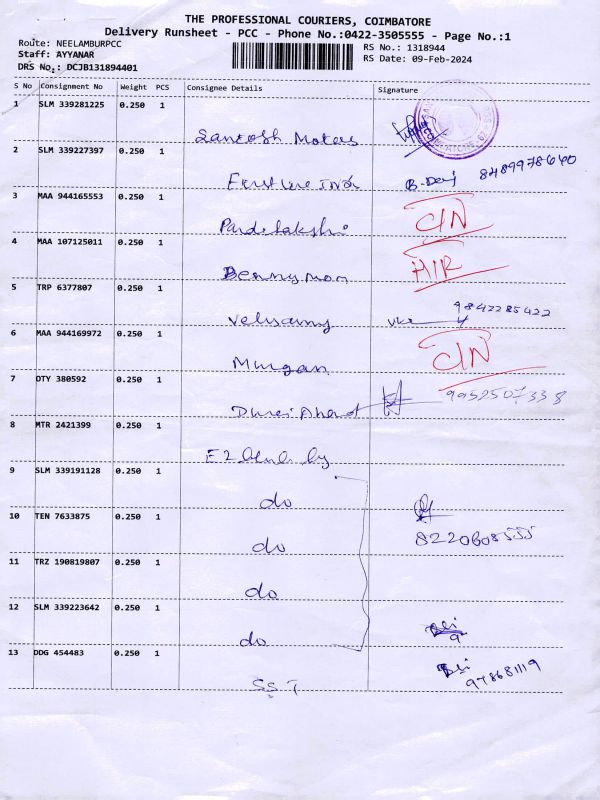 THE PROFESSIONAL COURIERS, COIMBATORE
Delivery Runsheet - PCC - Phone No.:0422-3505555 - Page No.:1
Route: NEELAMBURPCC
RS No.: 1318944
Staff: AYYANAR
RS Date: 09-Feb-2024
DRS No.: DCJB131894401
S No Consignment No Weight PCS Consignee Details Signature
1 SLM 339281225 0.250 1
Santosh Motors
2 SLM 339227397 0.250 1
8489978640
3 MAA 944165553 0.250 1
C/N
4 MAA 107125011 0.250 1
Bennymon
5 TRP 6377807 0.250 1
9842285422
Velusamy
6 MAA 944169972 0.250 1
Murgan
C/N
7 DTY 380592 0.250 1
9952507338
8 MTR 2421399 0.250 1
9 SLM 339191128 0.250 1
do
10 TEN 7633875 0.250 1
do
11 TRZ 190819807 0.250 1
do
12 SLM 339223642 0.250 1
do
13 DDG 454483 0.250 1
SST